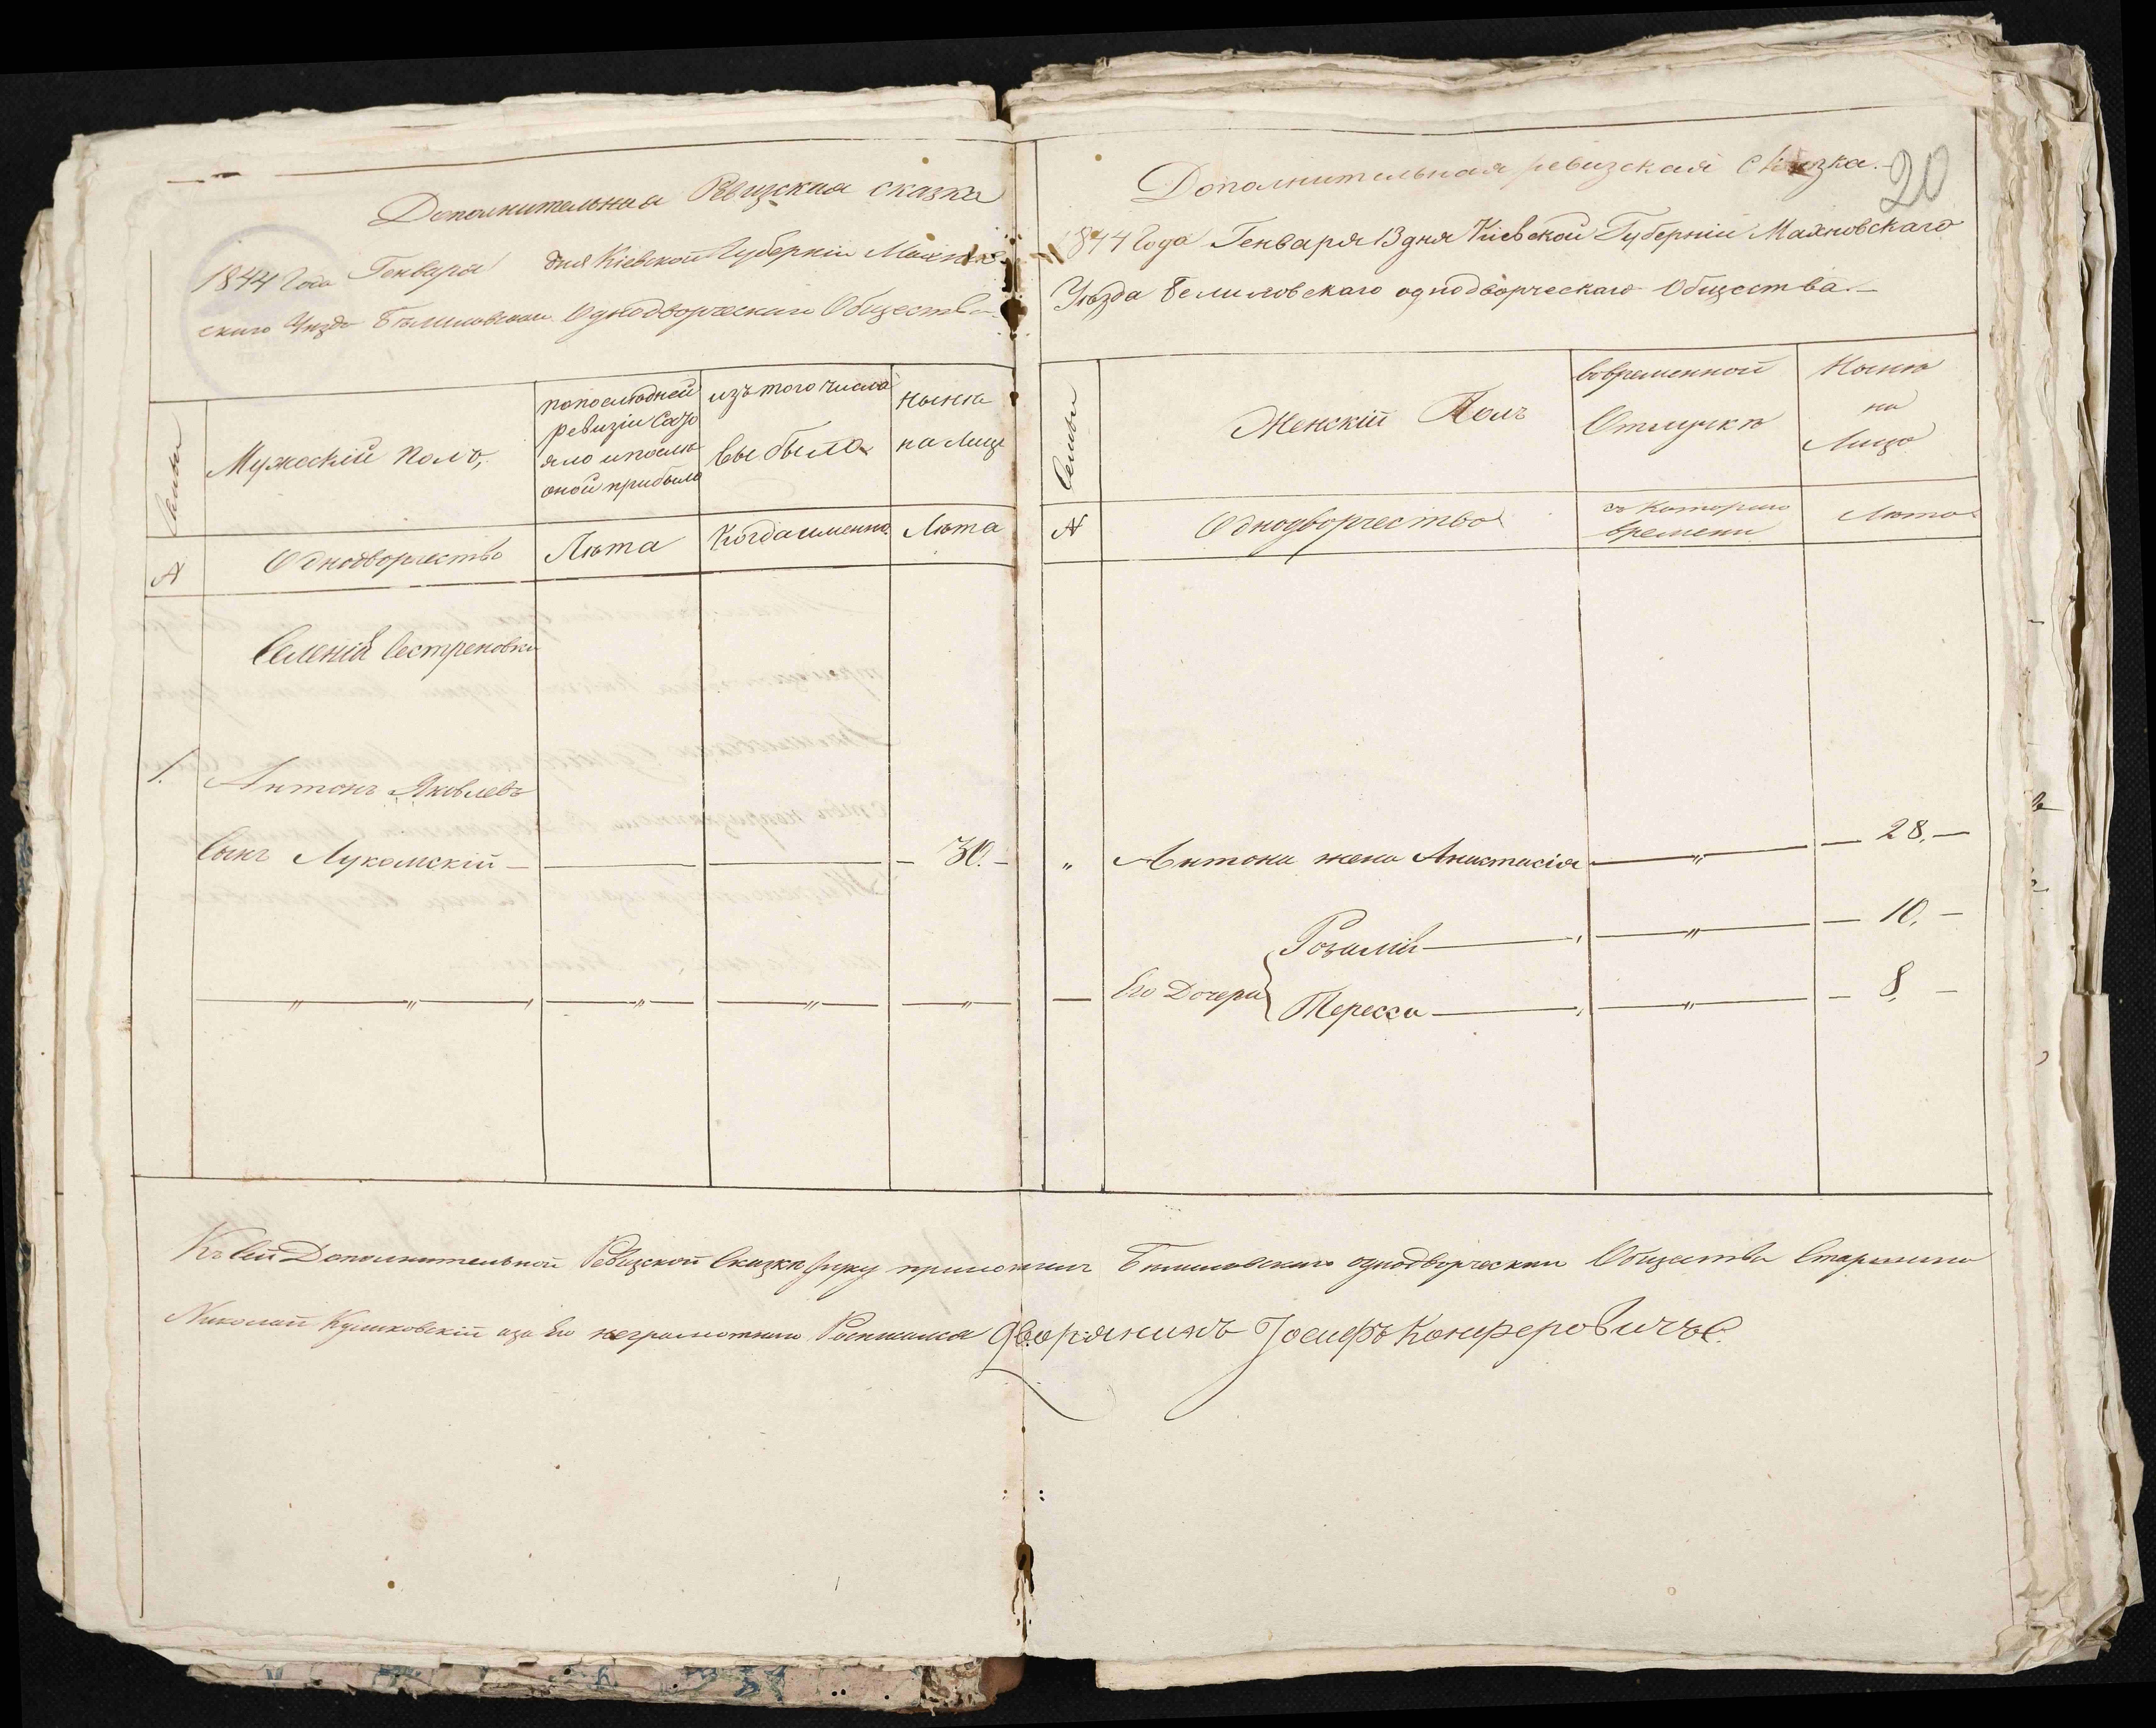 Дополнительная Ревизская сказка
1844 Года Генваря дня Кіевской Губерніи Махнов
скаго Уезда Бѣлиловскаго Однодворческаго Общества
Семьи
Мужескій полъ,
попослѣдней
ревизіи Состо
яло и послѣ
оной прибыло
изъ того числа
выбыло
нынѣ
на лицо
№
Однодворчество
Лѣта
Когда именно
Лѣта
Селенія Сестреновки
1.
Антонъ Яковлевъ
Сынъ Лукомскій
30.
20
Дополнительная ревизская Сказка.
1844 Года Генваря 13 дня Кіевской Губерніи Махновскаго
Уѣзда Белиловскаго однодворческаго Общества.
Семьи
Женскій Полъ
вовременной
Отлучкѣ
Нынѣ
на
Лицо
№
Однодворчество
съ Котораго
времени
Лѣта
„ Антона жена Анастасія „ 28.
Розалія „ 10.
Его Дочери
Тересса „ 8.
Къ Сей Дополнительной Ревизской Сказкѣ руку приложилъ Бѣлиловскаго однодворческаго Общества Старшина
Николай Куликовскій а за Его неграмотнаго Росписался дворянинъ Іосифъ Конферовичъ